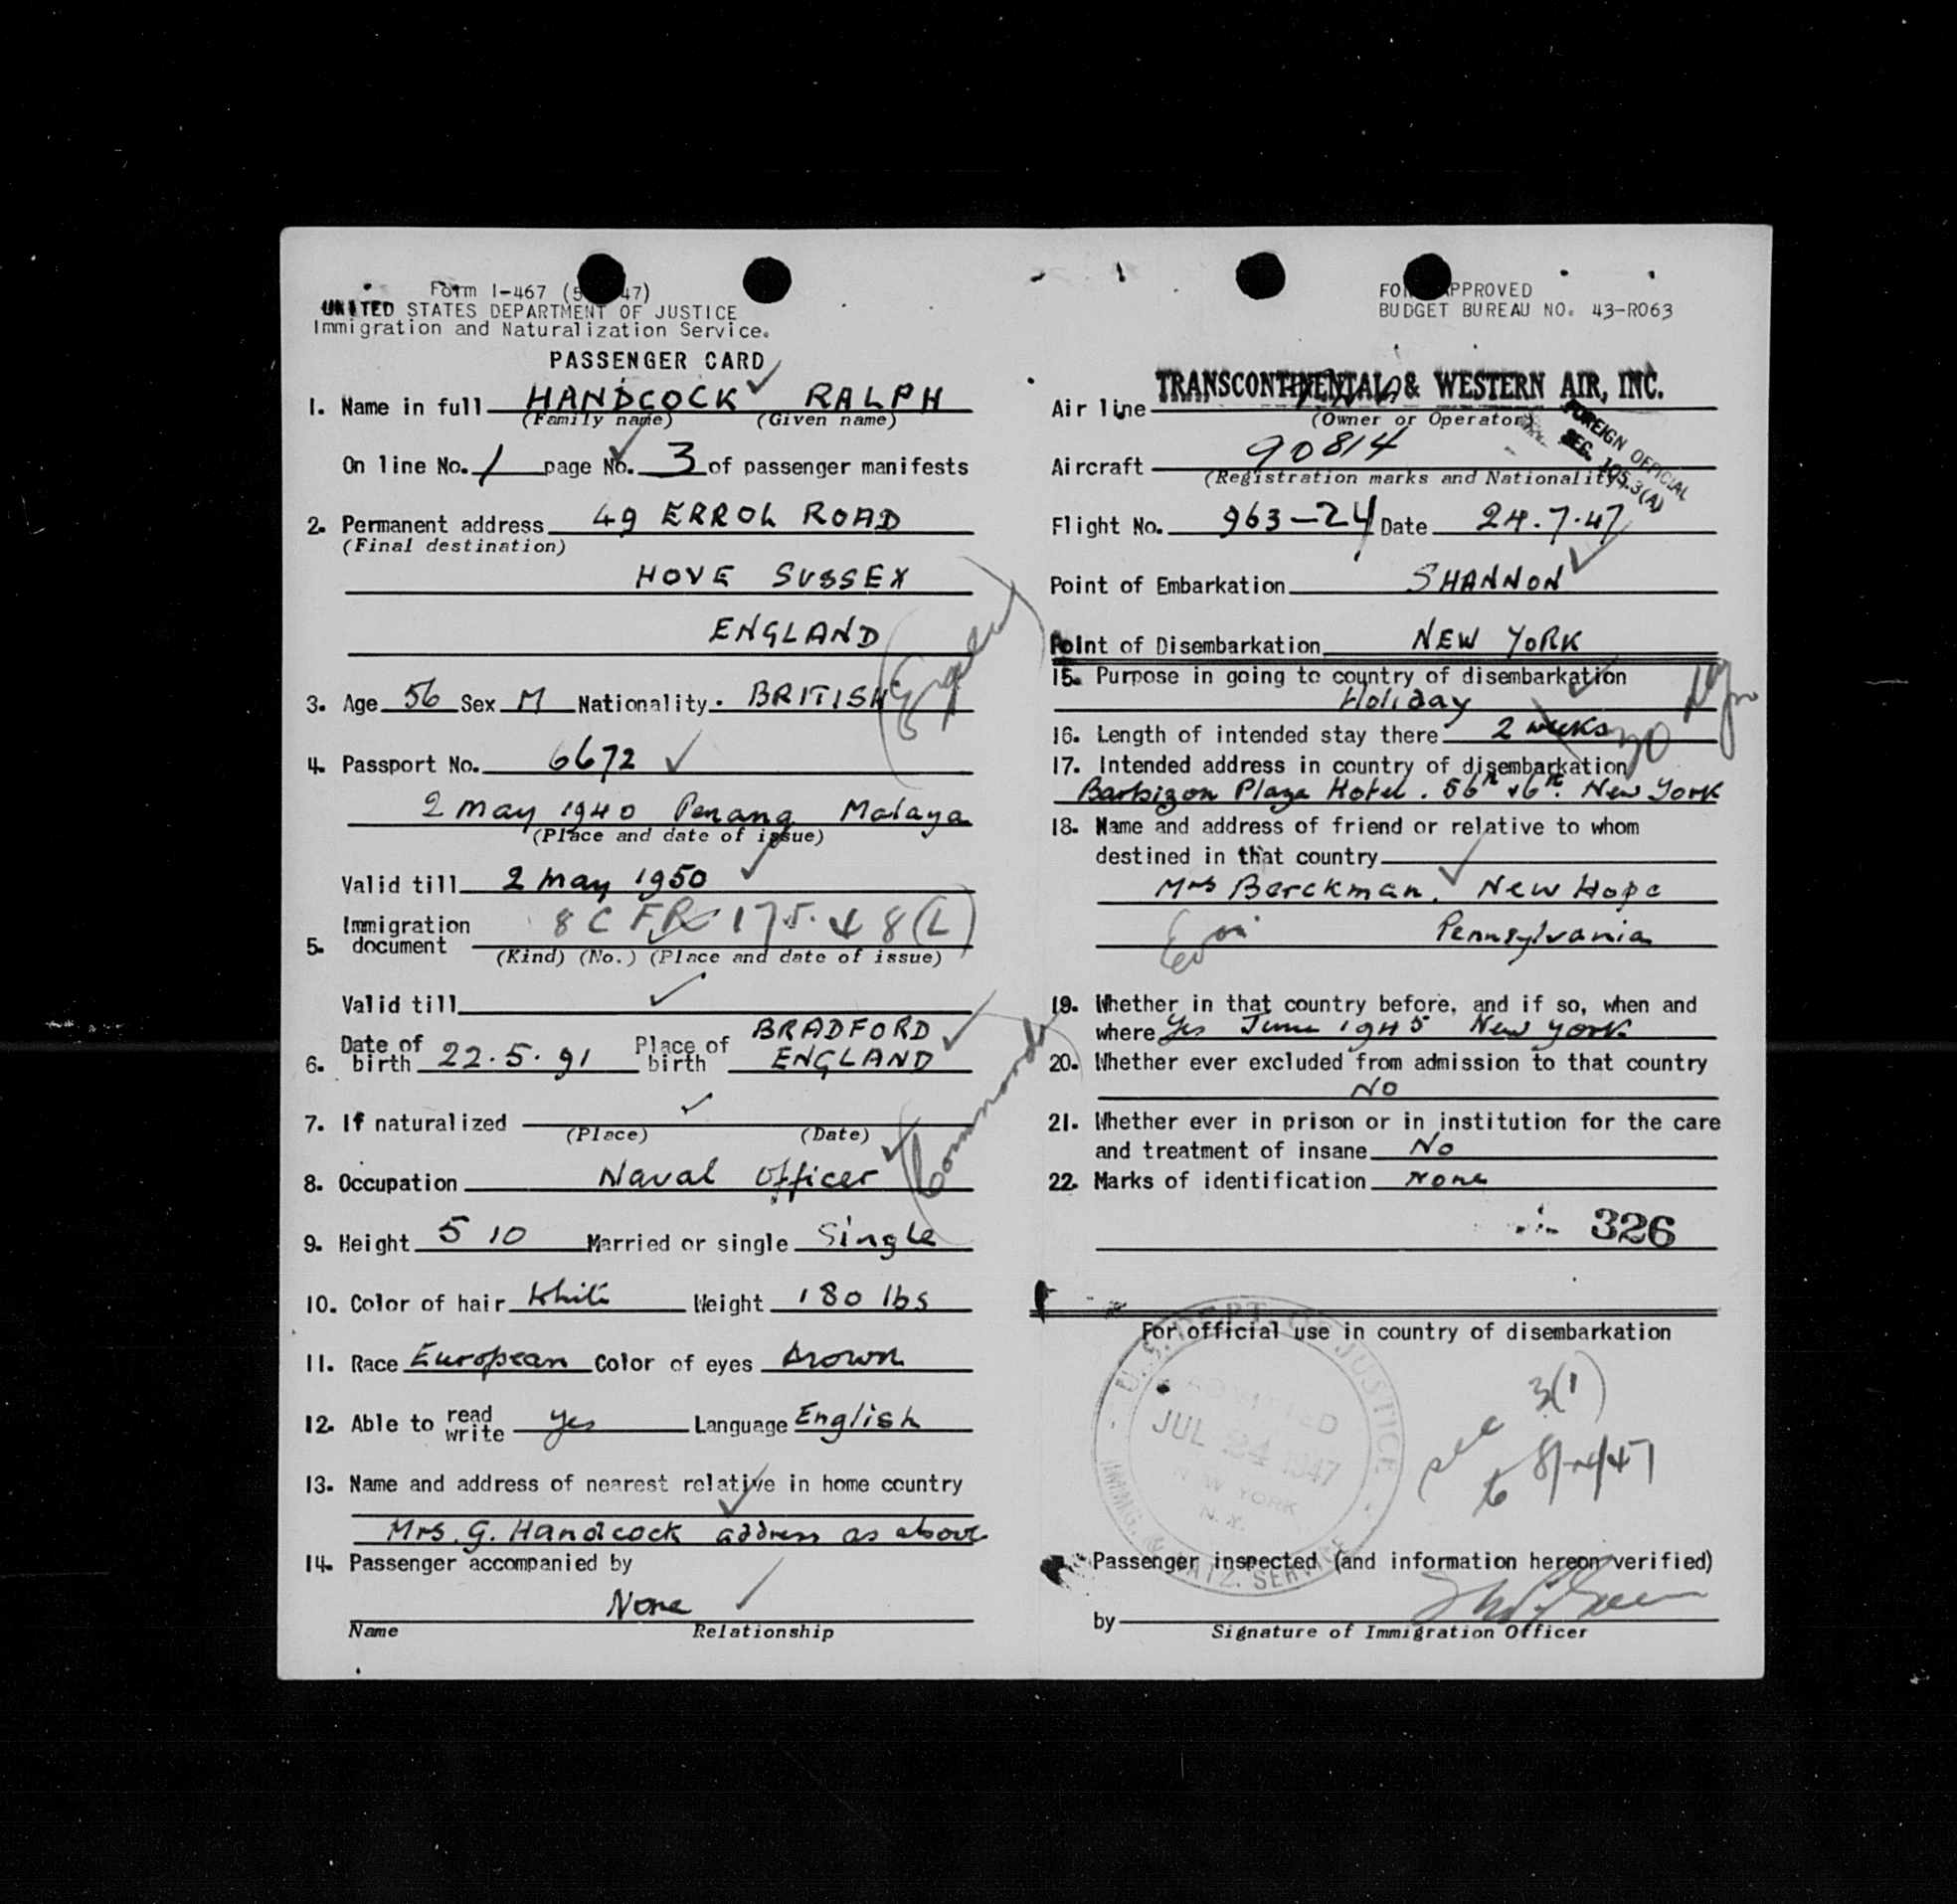 Form I-467 (5 47)
UNITED STATES DEPARTMENT OF JUSTICE
Immigration and Naturalization Service.
PASSENGER CARD
1. Name in full HANDCOCK RALPH
(Family name) (Given name)
On line No. 1 page No. 3 of passenger manifests
2. Permanent address 49 ERROL ROAD
(Final destination)
HOVE SUSSEX
ENGLAND
3. Age 56 Sex M Nationality. BRITISH
(England)
4. Passport No. 6672
2 May 1940 Penang Malaya
(Place and date of issue)
Valid till 2 May 1950
5. Immigration document 8 CFR 175.48(L)
(Kind) (No.) (Place and date of issue)
Valid till
6. Date of birth 22.5.91 Place of birth BRADFORD ENGLAND
7. If naturalized
(Place) (Date)
8. Occupation Naval Officer
(Commander)
9. Height 5 10 Married or single Single
10. Color of hair White Weight 180 lbs
11. Race European Color of eyes brown
12. Able to read write yes Language English
13. Name and address of nearest relative in home country
Mrs. G. Handcock address as above
14. Passenger accompanied by
None
Name Relationship
FORM APPROVED
BUDGET BUREAU NO. 43-R063
TRANSCONTINENTAL & WESTERN AIR, INC.
Air line
(Owner or Operator)
FOREIGN OFFICIAL
SEC. 105.3(A)
Aircraft 90814
(Registration marks and Nationality)
Flight No. 963-24 Date 24.7.47
Point of Embarkation SHANNON
Point of Disembarkation NEW YORK
15. Purpose in going to country of disembarkation
Holiday
16. Length of intended stay there 2 weeks 30
17. Intended address in country of disembarkation
Barbizon Plaza Hotel. 56th & 6th. New York
18. Name and address of friend or relative to whom
destined in that country
Mrs Berckman. New Hope
Pennsylvania
19. Whether in that country before, and if so, when and
where Yes June 1945 New York
20. Whether ever excluded from admission to that country
No
21. Whether ever in prison or in institution for the care
and treatment of insane No
22. Marks of identification None
326
For official use in country of disembarkation
U.S. DEPT. OF JUSTICE
ADMITTED
JUL 24 1947
NEW YORK
N.Y.
IMMIG. & NATZ. SERVICE
3(1)
to
Passenger inspected (and information hereon verified)
by
Signature of Immigration Officer